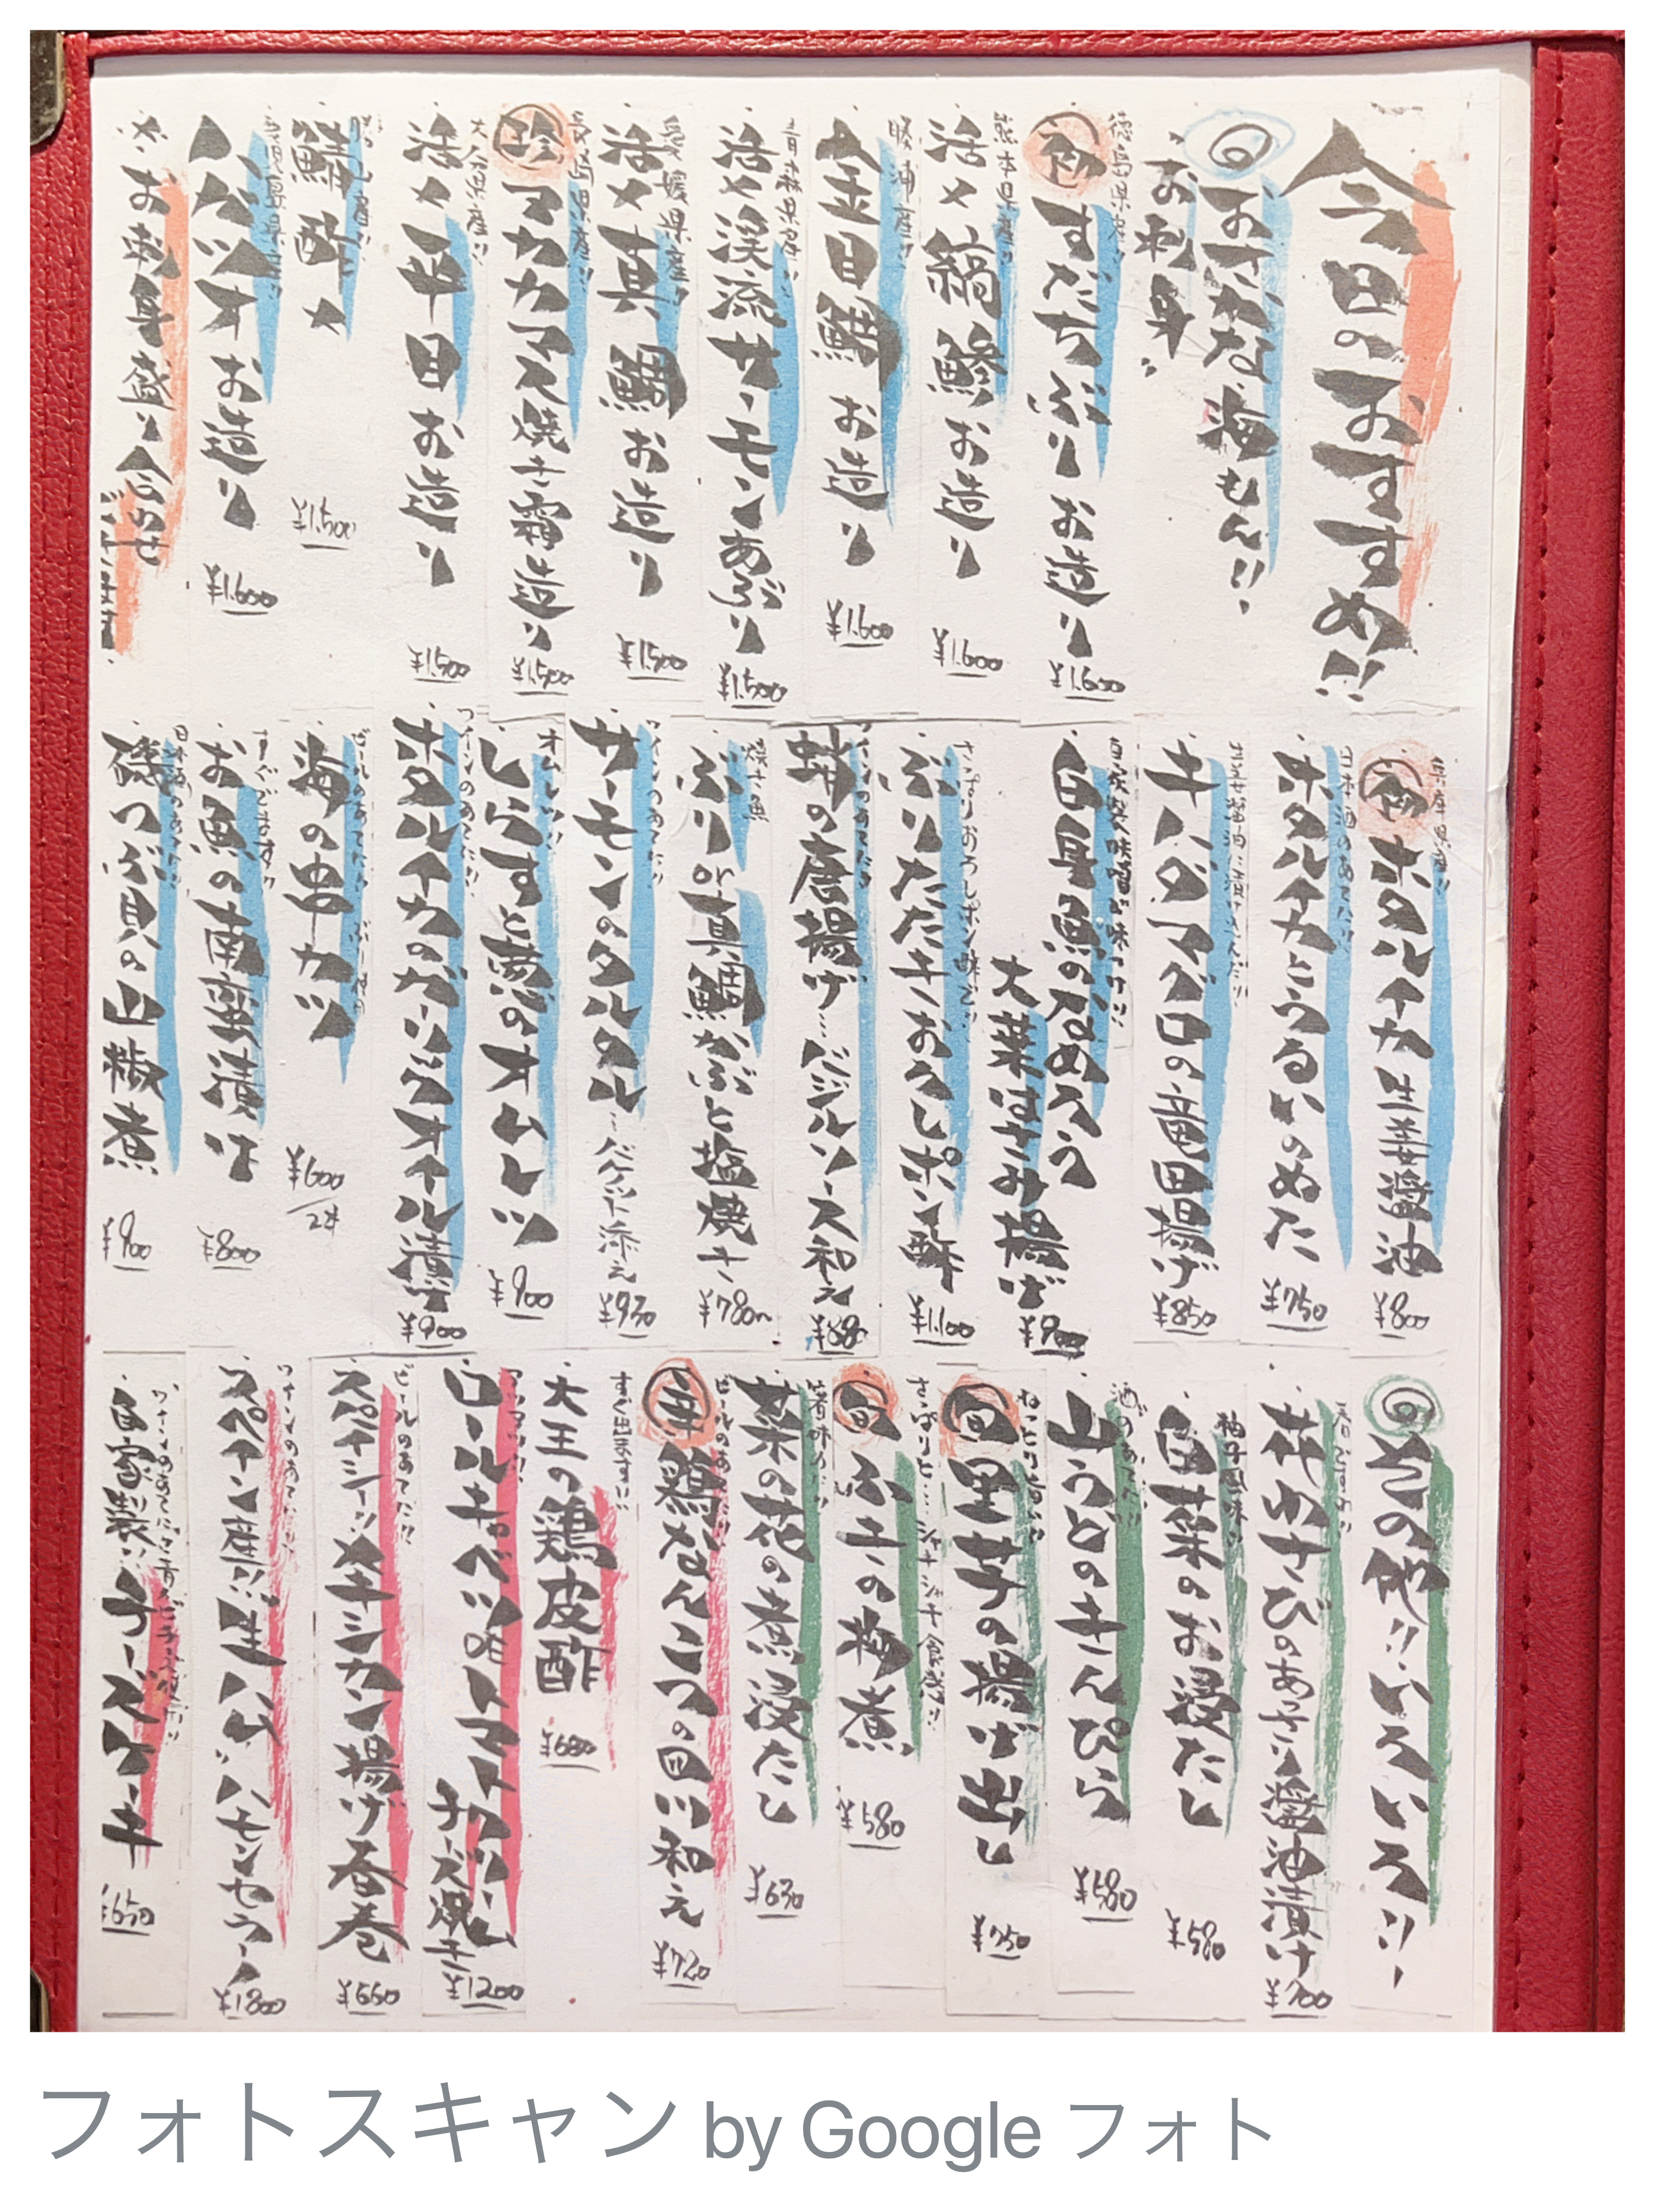 今日のおすすめ!!
おさかな海もん!!
お刺身
徳島県産!!
初 すだちぶり お造り ¥1.600
熊本県産!!
活〆 縞鯵 お造り ¥1.600
勝浦産!!
金目鯛 お造り ¥1.600
青森県産!!
活〆渓流サーモンあぶり ¥1.500
愛媛県産!!
活〆真鯛 お造り ¥1.500
長崎県産!!
珍 アカカマス焼き霜造り ¥1.500
大分県産!!
活〆平目 お造り ¥1.500
鯖酢〆 ¥1.500
カツオ お造り ¥1.600
※お刺身盛り合わせ
ございます!
兵庫県産!!
初 ホタルイカ 生姜醤油 ¥800
日本酒のあてに!!
ホタルイカとうるいのぬた ¥750
生姜醤油に漬けこんだ!!
キハダマグロの竜田揚げ ¥850
白身魚のなめろう
大葉はさみ揚げ ¥900
さっぱりおろしポン酢で!!
ぶりたたきおろしポン酢 ¥1.100
蛸の唐揚げ…バジルソース和え ¥880
焼き魚
ぶり or 真鯛かぶと塩焼き ¥780〜
ワインのあてに!!
サーモンのタルタル…バケット添え ¥930
オムレツ!!
しらすと葱のオムレツ ¥900
ワインのあてに!!
ホタルイカのガーリックオイル漬け ¥900
ビールのあてに!!
海の串カツ ¥600/2本
すぐでます!!
お魚の南蛮漬け ¥800
日本酒のあてに!!
磯つぶ貝の山椒煮 ¥900
その他!!いろいろ!!
花わさびのあっさり醤油漬け ¥700
柚子風味!!
白菜のお浸たし ¥580
酒のあてに!!
山うどのきんぴら ¥580
旬 里芋の揚げ出し ¥750
さっぱりと…シャキシャキ食感!!
旬 ふきの梅煮 ¥580
菜の花の煮浸たし ¥630
ビールのあてに!!
辛 鶏なんこつの四川和え ¥720
すぐ出ます!!
大王の鶏皮酢 ¥680
アツアツ!!
ロールキャベツのトマトソース
チーズ焼き ¥1200
ビールのあてに!!
スパイシー!!タキシカン揚げ春巻 ¥660
ワインのあてに!!
スペイン産!!生ハム!!ハモンセラーノ ¥1800
自家製!!チーズケーキ ¥650
フォトスキャン by Google フォト